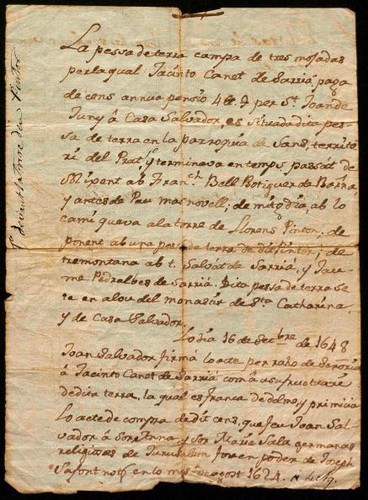 La pessa de terra campa de tres mojadas
per la qual Jacinto Canet de Sarriá paga
de cens annua pensió 4 ₶ per St. Joan de
Juny á Casa Salvador, es situada dita pes-
sa de terra en la parroquia de Sans, territo-
ri del Prat, y termineva en temps passat de
Mixent ab Fran.ch Bell Botiguer de Barna,
y antes de Pau masnovell; de mitgdia ab lo
camí que va a la torre de Llorens Pintor, de
ponent ab una pessa de terra de dit Pintor; de
tremontana ab t. Salvat de Sarriá, y Jau-
me Pedralbes de Sarriá. Dita pesa de terra se
te en alou del monastir de Sta Catharina,
y de Casa Salvador.
Lo dia 16 de Setbre de 1648
Joan Salvador firmá lo acte per rahó de Señoria
á Jacinto Canet de Sarriá com á usufructuari
de dita terra, la qual es franca de delme, y primicia
Lo acte de compra de dit cens, que feu Joan Sal-
vador á Sor Anna, y Sor Maria Sala germanas
religiosas de Jerusalem fou en poder de Joseph
Safont noti en lo mes de agost 1624.